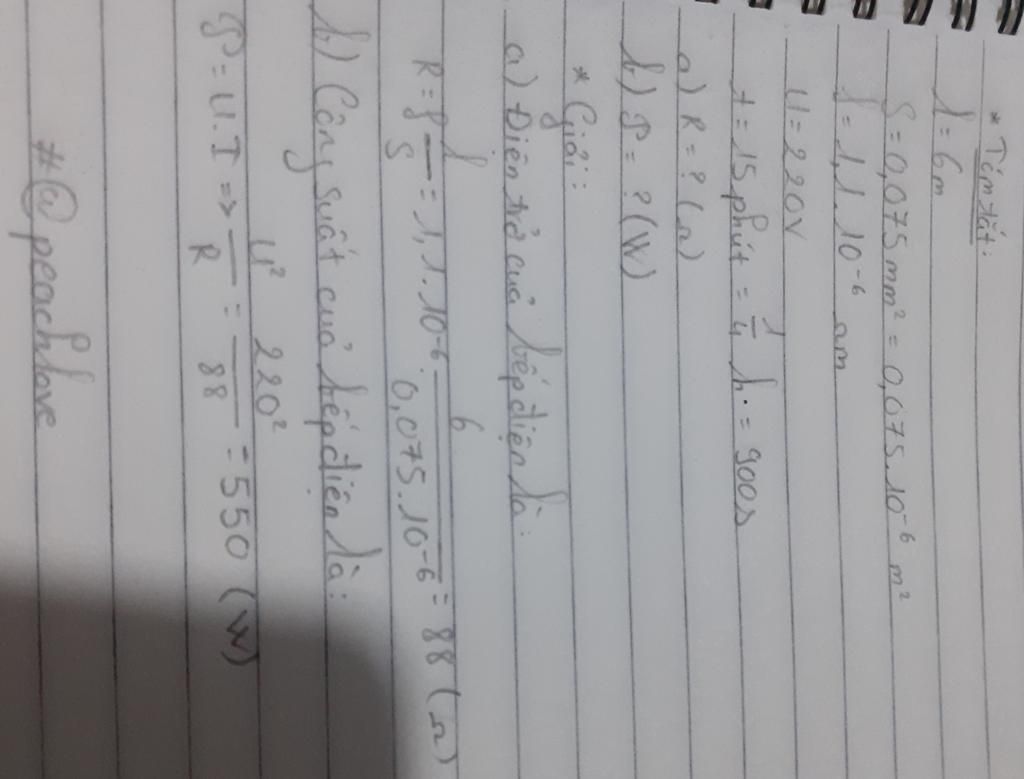 * Tóm tắt:
l = 6m
S = 0,075 mm² = 0,075.10⁻⁶ m²
ρ = 1,1.10⁻⁶ Ωm
U = 220V
t = 15 phút = 1/4 h. = 900s
a) R = ? (Ω)
b) 𝒫 = ? (W)
* Giải:
a) Điện trở của bếp điện là:
R = ρ l/S = 1,1.10⁻⁶. 6/0,075.10⁻⁶ = 88 (Ω)
b) Công suất của bếp điện là:
𝒫 = U.I => U²/R = 220²/88 = 550 (W)
#@peachlove